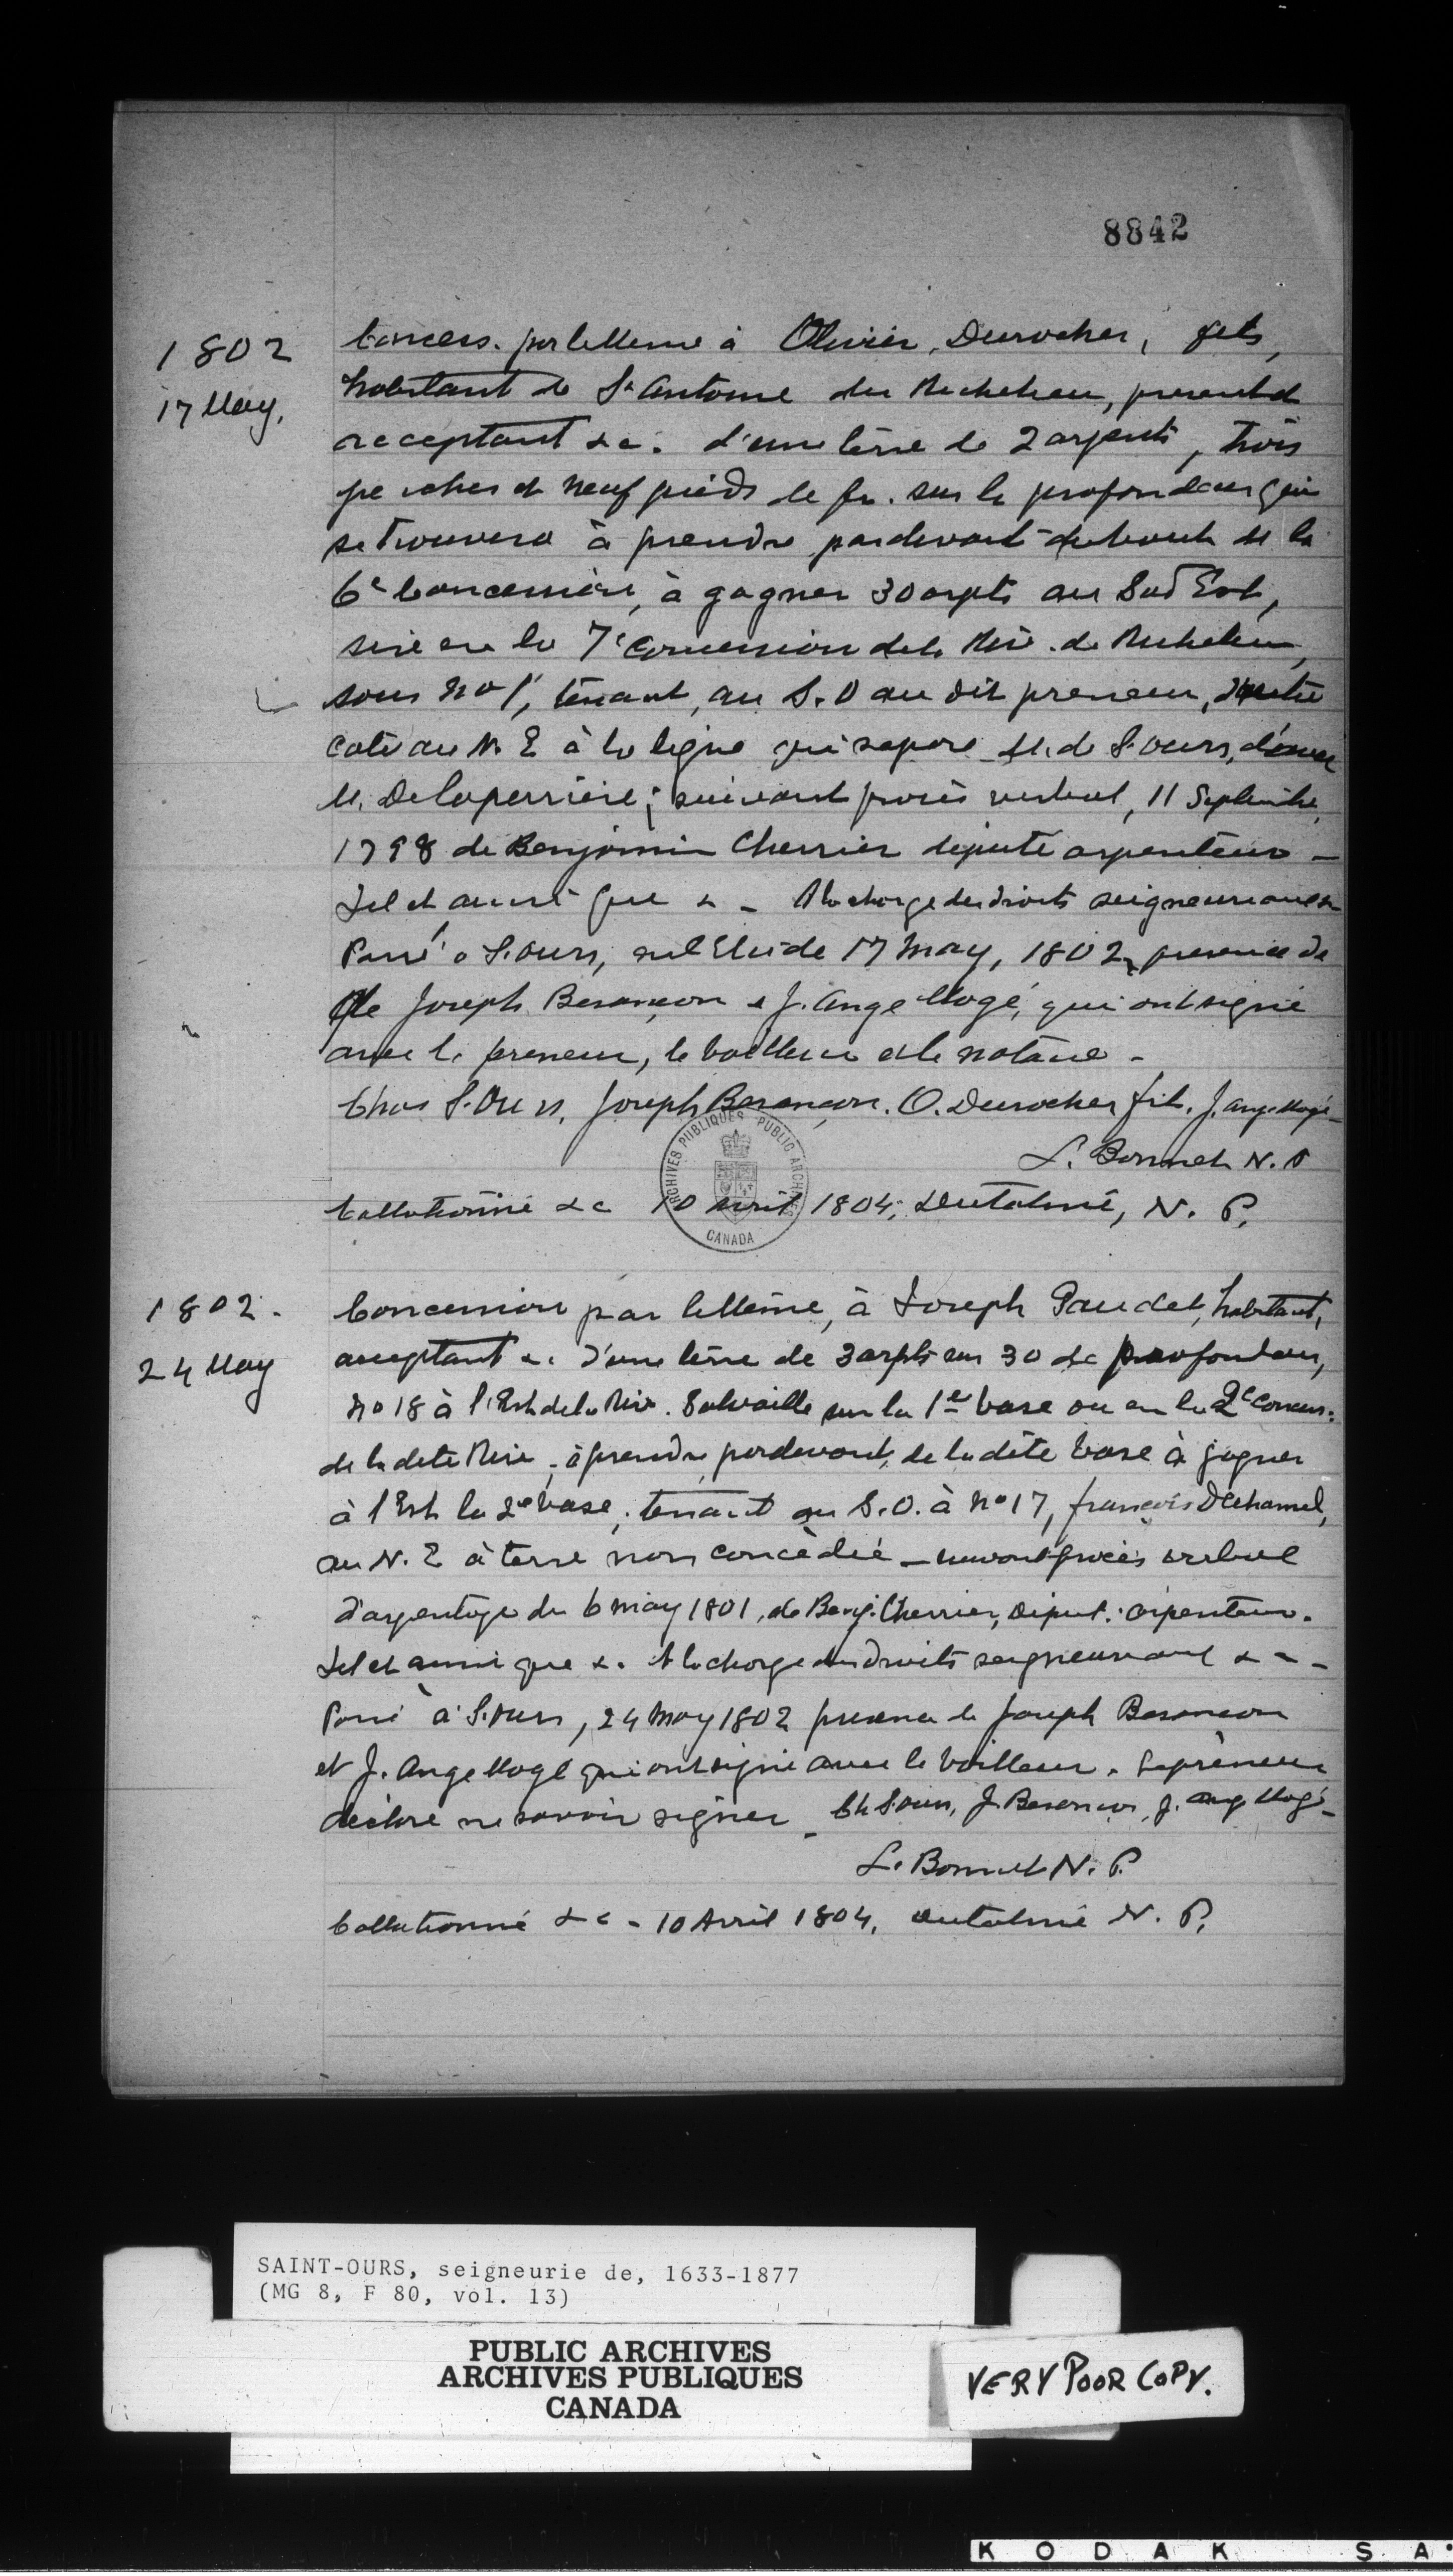 8842
1802
17 May,
Concess. par le Meme à Olivier Durocher, fils,
habitant de St Antoine du Richelieu, present et
acceptant &c. d'une terre de 2 arpents, trois
perches et neuf pieds de fr. sur la profondeur qui
se trouvera à prendre pardevant du bout de la
6e Concession, à gagner 30 arpts au Sud Est,
sise en la 7e Concession de la Riv. de Richelieu,
sous No 1, tenant, au S.O au dit preneur, d'autre
coté au N. E à la ligne qui separe M. de S. Ours, d'avec
M. Delaperrière; suivant procès verbal, 11 Septembre,
1798 de Benjamin Cherrier député arpenteur —
Tel et ainsi que & — A la charge des droits seigneuriaux
Passé à S. Ours, 17 May, 1802, presence de
de Joseph Besançon & J. Ange Mogé, qui ont signé
avec le preneur, le bailleur et le notaire —
Chas S. Ours, Joseph Besançon. O. Durocher fils. J. Ange Mogé —
L. Bonnet N. P
Collationné &c 10 avril 1804, Dutalmé, N. P.
1802 -
24 May
Concession par le Même, à Joseph Gaudet, habitant,
acceptant &c d'une terre de 3 arpts sur 30 de profondeur,
No 18 à l'Est de la Riv. Salvaille sur la 1re base ou en la 2e Concess:
de la dite Riv. à prendre pardevant, de la dite base à gagner
à l'Est la 2e base; tenant au S.O. à No 17, françois Duhamel,
au N. E à terre non concédée — suivant procès verbal
d'arpentage du 6 may 1801, de Benj. Cherrier, Déput. arpenteur.
Tel et ainsi que &. A la charge des droits seigneuriaux & c —
Passé à S. Ours, 24 May 1802 presence de Joseph Besancon
et J. Ange Mogé qui ont signé avec le bailleur. Le preneur
déclare ne savoir signer — Ch S. Ours, J Besancon, J. Ange Mogé —
L. Bonnet N. P.
Collationné &c - 10 Avril 1804. Dutalmé N. P.
ARCHIVES PUBLIQUES PUBLIC ARCHIVES
CANADA
SAINT-OURS, seigneurie de, 1633-1877
(MG 8, F 80, vol. 13)
PUBLIC ARCHIVES
ARCHIVES PUBLIQUES
CANADA
VERY POOR COPY.
KODAK S.A.